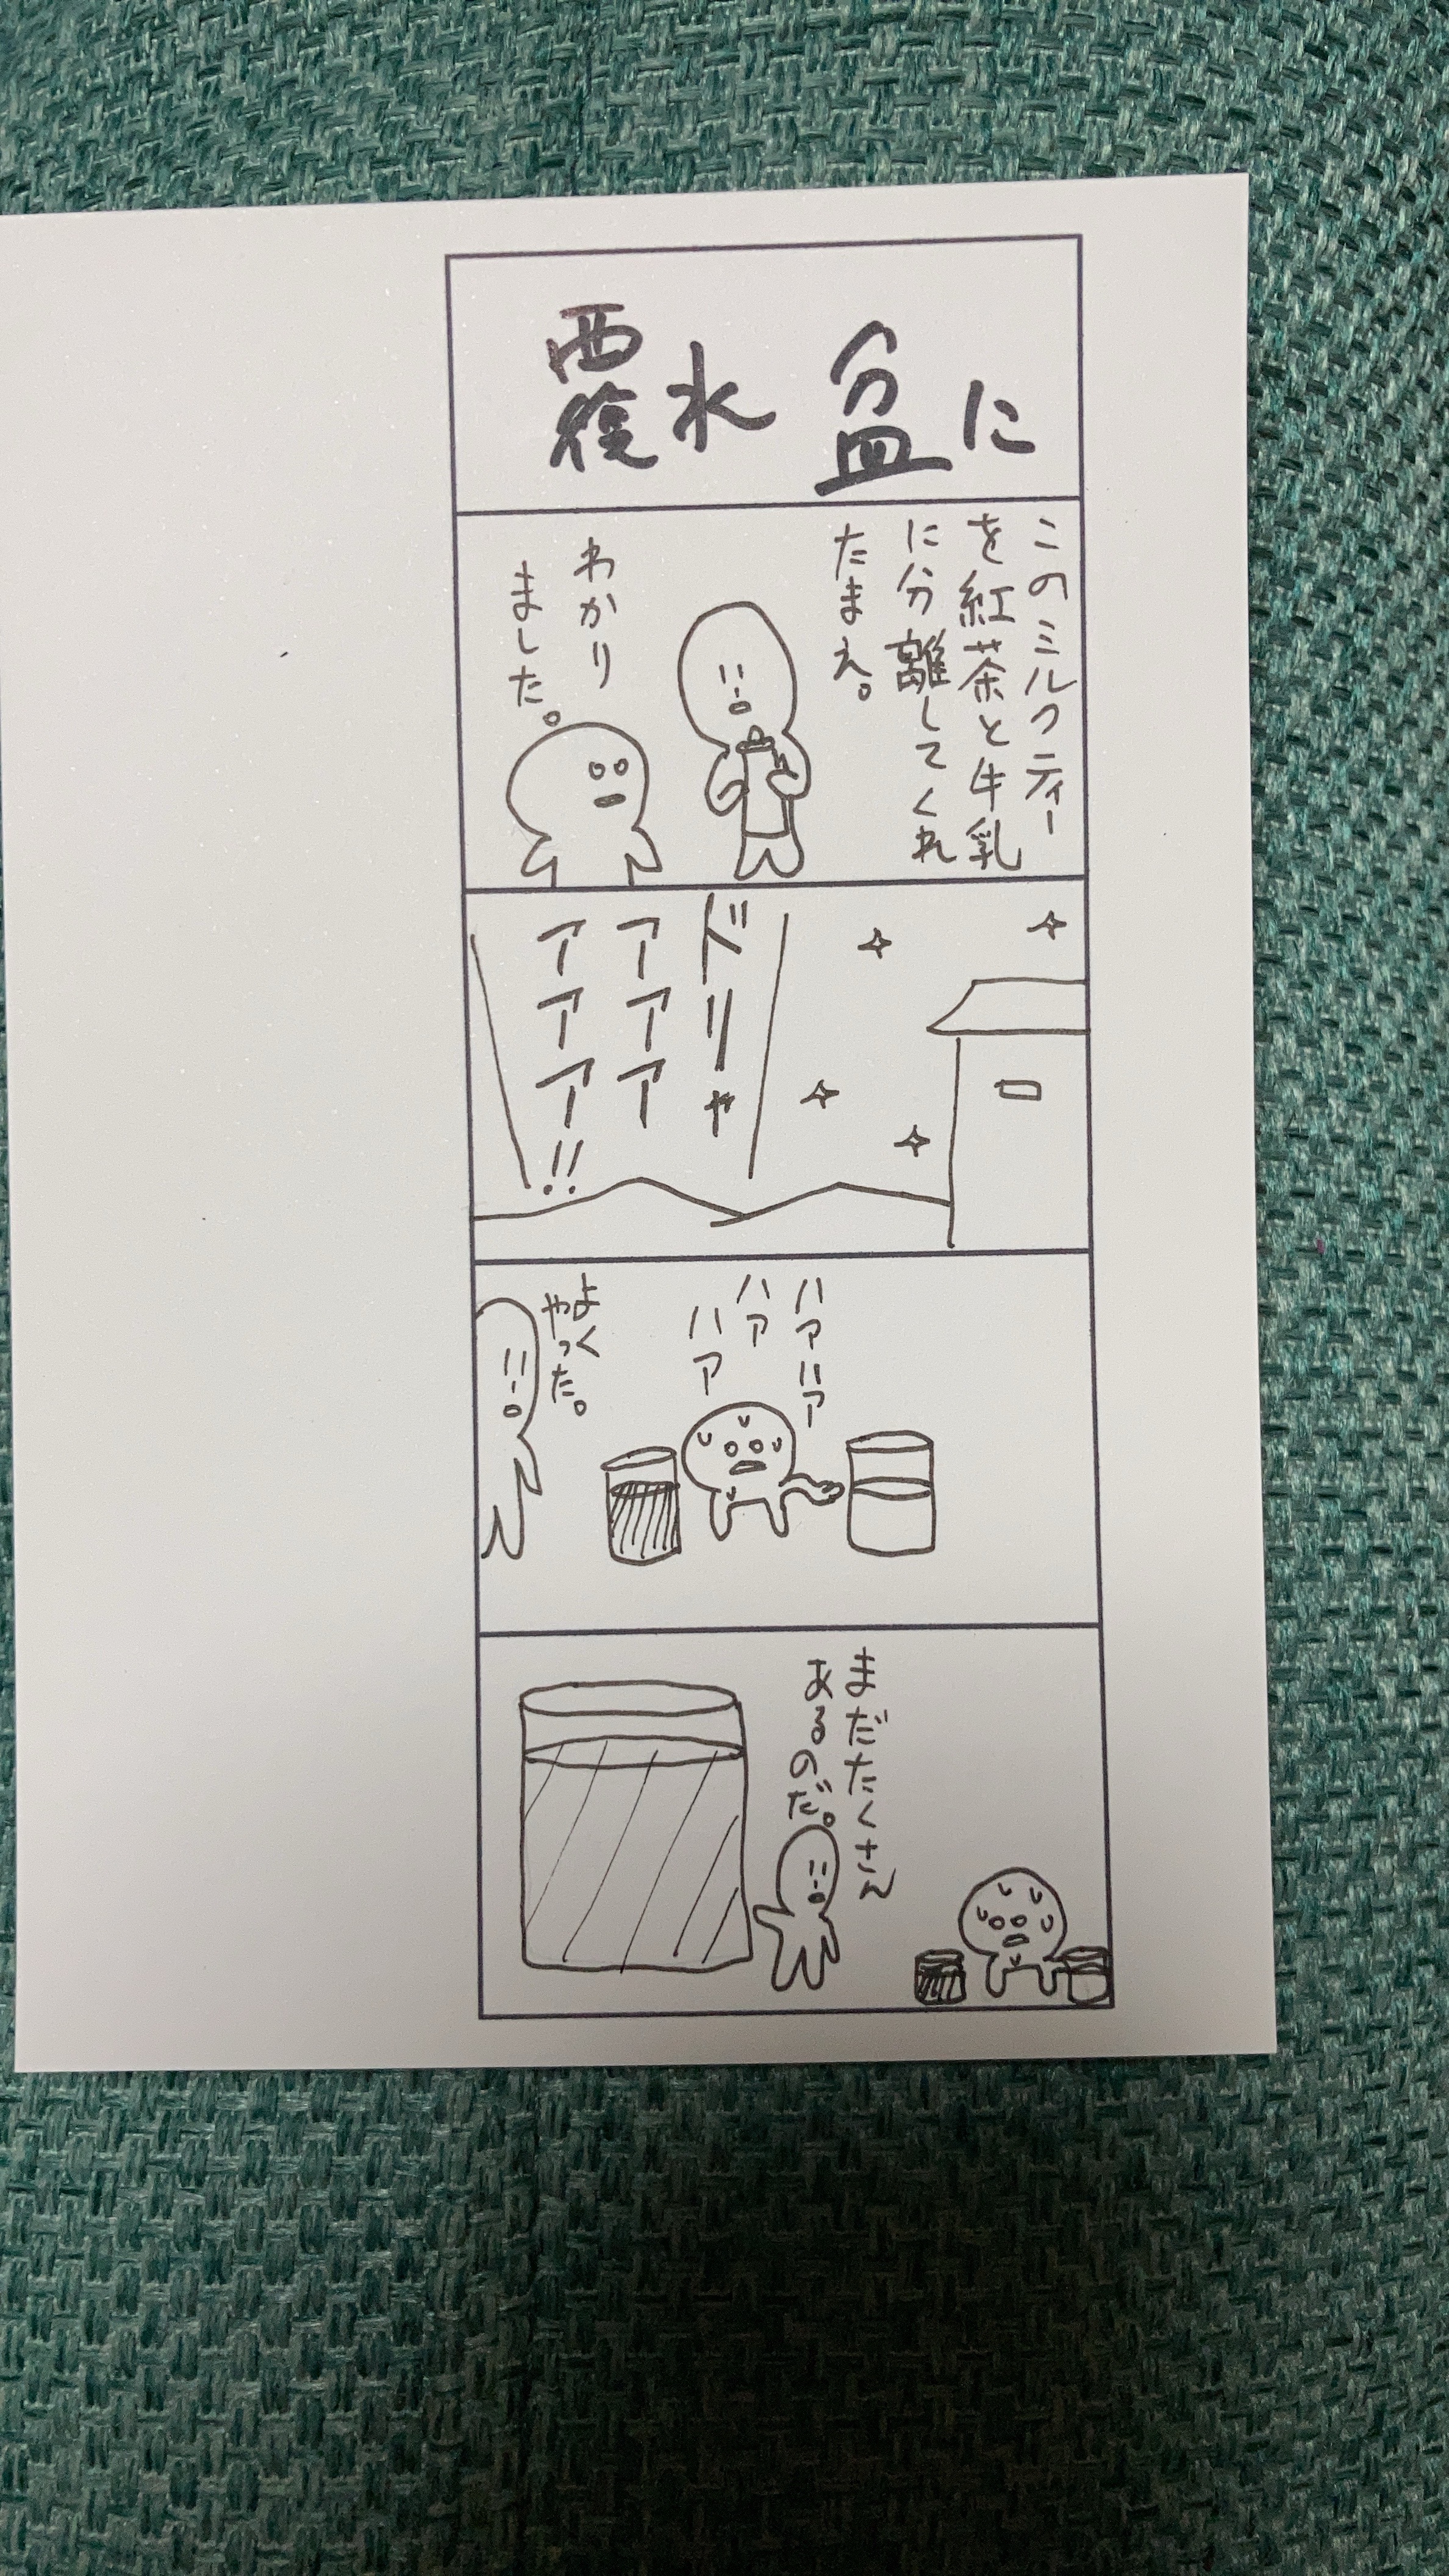 覆水 盆に
このミルクティー
を紅茶と牛乳
に分離してくれ
たまえ。
わかり
ました。
ドリャ
アアア
アアア!!
ハァハァ
ハァ
ハァ
よく
やった。
まだたくさん
あるのだ。